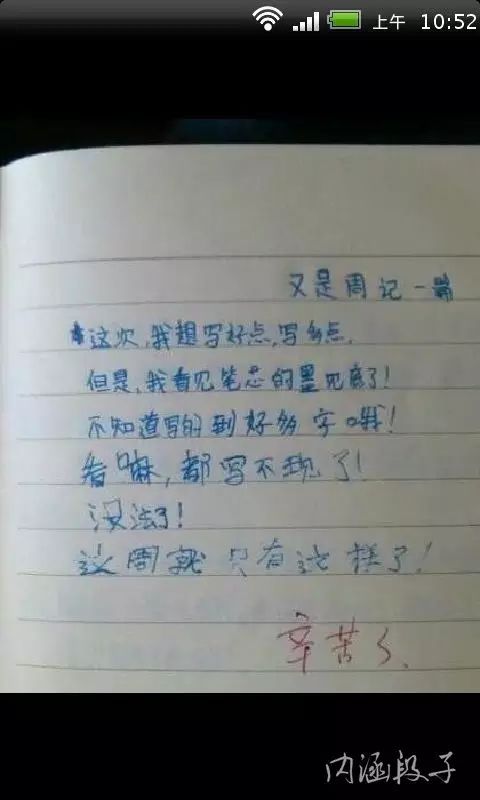 上午 10:52
又是周记一篇
这次,我想写好点,写多点.
但是,我看见笔芯的墨见底了!
不知道写的到好多字哦!
看嘛,都写不现了!
没法了!
这周就只有这样了!
辛苦了、
内涵段子